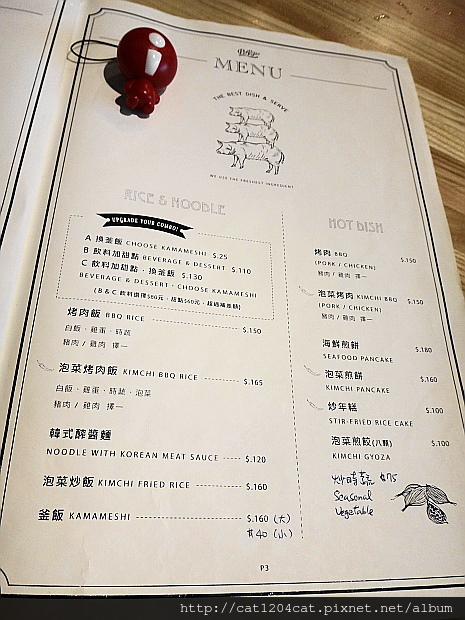 MENU
THE BEST DISH & SERVE
WE USE THE FRESHEST INGREDIENT
RICE & NOODLE
UPGRADE YOUR COMBO!
A 換釜飯 CHOOSE KAMAMESHI $.25
B 飲料加甜點 BEVERAGE & DESSERT $.110
C 飲料加甜點、換釜飯 $.130
BEVERAGE & DESSERT、CHOOSE KAMAMESHI
(B & C 飲料選擇$60元、甜點$60元、超過補差額)
烤肉飯 BBQ RICE $.150
白飯、雞蛋、時蔬
豬肉 / 雞肉 擇一
泡菜烤肉飯 KIMCHI BBQ RICE $.165
白飯、雞蛋、時蔬、泡菜
豬肉 / 雞肉 擇一
韓式醡醬麵
NOODLE WITH KOREAN MEAT SAUCE $.120
泡菜炒飯 KIMCHI FRIED RICE $.160
釜飯 KAMAMESHI $.160 (大)
$140 (小)
HOT DISH
烤肉 BBQ $.150
(PORK / CHICKEN)
豬肉 / 雞肉 擇一
泡菜烤肉 KIMCHI BBQ $.150
(PORK / CHICKEN)
豬肉 / 雞肉 擇一
海鮮煎餅 $.180
SEAFOOD PANCAKE
泡菜煎餅 $.160
KIMCHI PANCAKE
炒年糕 $.100
STIR-FRIED RICE CAKE
泡菜煎餃(八顆) $.100
KIMCHI GYOZA
炒時蔬 $75
Seasonal
Vegetable
P3
http://cat1204cat.pixnet.net/album